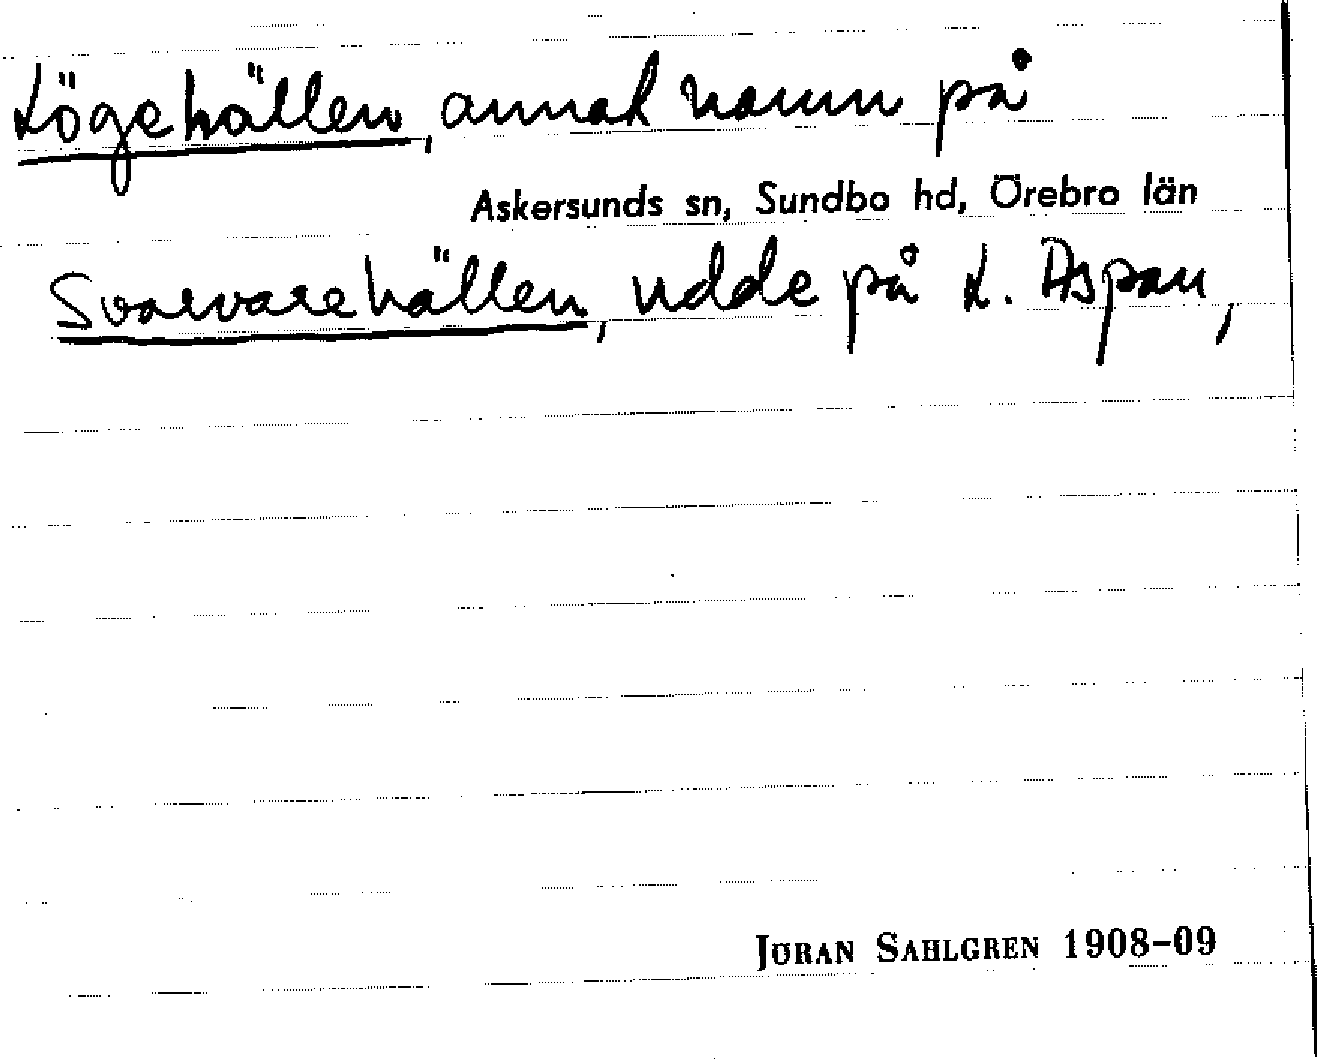 Lögehällen, annat namn på
Askersunds sn, Sundbo hd, Örebro län
Svarvarehällen, udde på L. Aspan,
JÖRAN SAHLGREN 1908-09